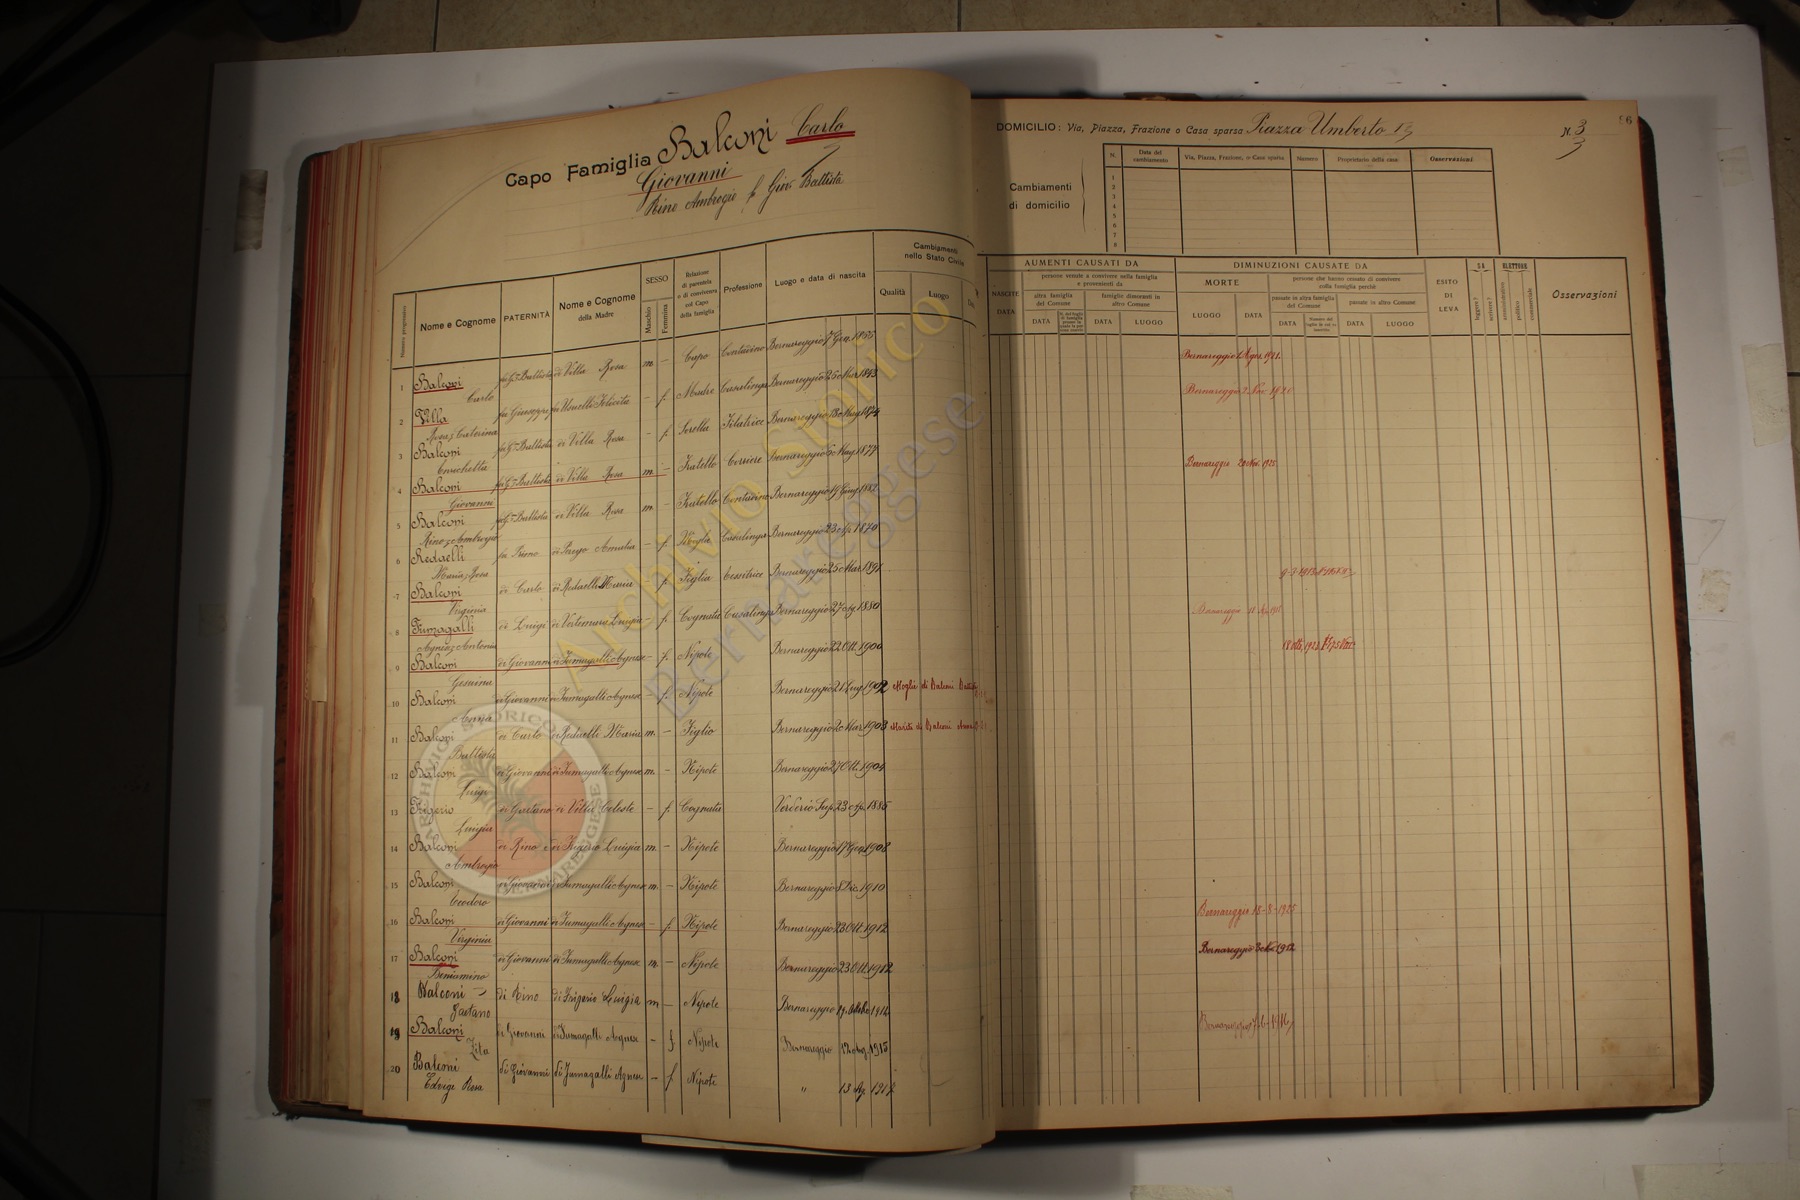 Capo Famiglia Balconi Carlo
Giovanni
Rino Ambrogio fu Giov. Battista
DOMICILIO: Via, Piazza, Frazione o Casa sparsa Piazza Umberto
N. 3
86
Cambiamenti di domicilio
N. Data del cambiamento Via, Piazza, Frazione, o Casa sparsa Numero Proprietario della casa Osservazioni
1
2
3
4
5
6
7
8
Numero progressivo Nome e Cognome PATERNITÀ Nome e Cognome della Madre SESSO Maschio Femmina Relazione di parentela o di convivenza col Capo della famiglia Professione Luogo e data di nascita Cambiamenti nello Stato Civile Qualità Luogo
AUMENTI CAUSATI DA
NASCITE DATA
persone venute a convivere nella famiglia e provenienti da
altra famiglia del Comune DATA
famiglie dimoranti in altro Comune DATA LUOGO
DIMINUZIONI CAUSATE DA
MORTE LUOGO DATA
persone che hanno cessato di convivere colla famiglia perchè
passate in altra famiglia del Comune DATA
passate in altro Comune DATA LUOGO
ESITO DI LEVA
SA leggere? scrivere?
ELETTORE amministrativo politico commerciale
Osservazioni
1 Balconi Carlo fu Gio Battista di Villa Rosa m. – Capo Contadino Bernareggio 7 Gen. 1865 Bernareggio 1 Agos. 1921.
2 Villa Rosa Caterina fu Giuseppe fu Felicita – f. Madre Casalinga Bernareggio 25 Mar. 1843 Bernareggio 2 Nov.
3 Balconi Enrichetta fu Gio Battista di Villa Rosa – f. Sorella Filatrice Bernareggio 13 Mag. 1874
4 Balconi Giovanni fu Gio Battista di Villa Rosa m. – Fratello Corriere Bernareggio 6 Mag. 1877 Bernareggio 1925
5 Balconi Rino Ambrogio fu Gio Battista di Villa Rosa m. – Fratello Contadino Bernareggio 19 Giug. 1882
6 Redaelli Maria Rosa fu Primo di Perego Amalia – f. Moglie Casalinga Bernareggio 23 1870
7 Balconi Virginia di Carlo di Redaelli Maria f. Figlia Tessitrice Bernareggio 25 Mar. 1891 9-3-1913
8 Fumagalli Agnese Antonia di Luigi di Luigia – f. Cognata Casalinga Bernareggio 27 Ag. 1880 Bernareggio 11
9 Balconi Gesuina di Giovanni di Fumagalli Agnese – f. Nipote Bernareggio 22 Ott. 1900 18 Ott. 1922
10 Balconi Anna di Giovanni di Fumagalli Agnese f. Nipote Bernareggio 21 Lug. 1902 Moglie di Balconi Battista
11 Balconi Battista di Carlo di Redaelli Maria m. – Figlio Bernareggio 20 Mar. 1903 Marito di Balconi Anna
12 Balconi Luigi di Giovanni di Fumagalli Agnese m. – Nipote Bernareggio 27 Ott. 1904
13 Frigerio Luigia di Gaetano di Villa Celeste – f. Cognata Verderio Sup. 23 1885
14 Balconi Ambrogio di Rino di Frigerio Luigia m. – Nipote Bernareggio 17 Gen. 1908
15 Balconi Teodoro di Giovanni di Fumagalli Agnese m. – Nipote Bernareggio 8 Dic. 1910
16 Balconi Virginia di Giovanni di Fumagalli Agnese – f. Nipote Bernareggio 23 Ott. 1912 Bernareggio 18-8-1925
17 Balconi Beniamino di Giovanni di Fumagalli Agnese m. – Nipote Bernareggio 23 Ott. 1912 Bernareggio 1912
18 Balconi Gaetano di Rino di Frigerio Luigia m – Nipote Bernareggio 1914
19 Balconi Zita di Giovanni di Fumagalli Agnese – f Nipote Bernareggio 12 Ag. 1915 Bernareggio 1916
20 Balconi Edvige Rosa di Giovanni di Fumagalli Agnese – f Nipote " 13 Ag. 1917
Archivio Storico
Bernareggese
ARCHIVIO STORICO
BERNAREGGESE